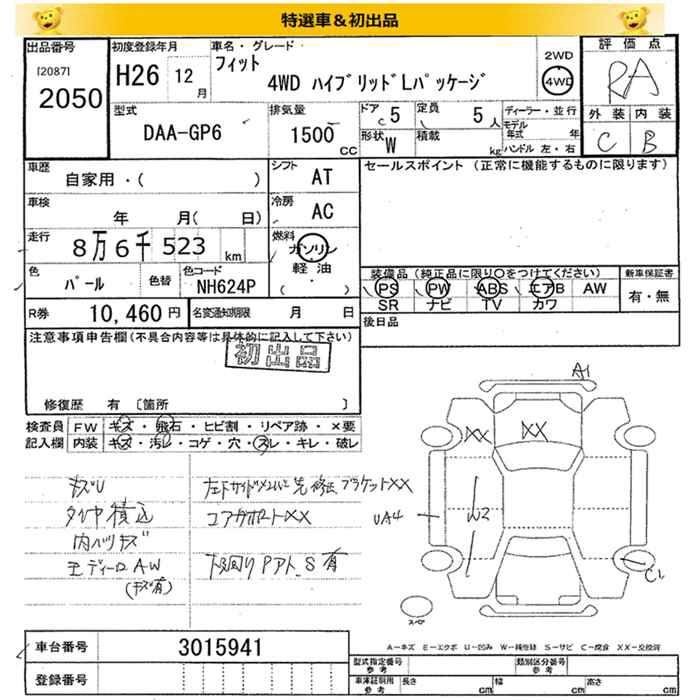 特選車＆初出品
出品番号 初度登録年月 車名・グレード 評価点
[2087] H26 12月 フィット 2WD
2050 4WD ハイブリッドLパッケージ 4WD RA
型式 排気量 ドア 定員 ディーラー・並行 外装 内装
DAA-GP6 1500CC 5 5人 モデル年式 年 C B
形状 W 積載 kg ハンドル 左・右
車歴 シフト セールスポイント (正常に機能するものに限ります)
自家用・( ) AT
車検 冷房
年 月( 日) AC
走行 燃料
8万6千523km ガソリン
色 色替 色コード 軽油
パール NH624P ( ・ )
装備品(純正品に限り○をつけてください) 新車保証書
PS PW ABS エアB AW 有・無
SR ナビ TV カワ
R券 10,460円 名変通知期限 月 日
後日品
注意事項申告欄(不具合内容等は具体的に記入して下さい)
初出品
修復歴 有 〔箇所 〕
検査員 FW キズ・飛石・ヒビ割・リペア跡・×要
記入欄 内装 キズ・汚レ・コゲ・穴・スレ・キレ・破レ
A1
XX XX
キズU
タイヤ積込 コアサポートXX
内ハリキズ
社ディーロAW 下回りPアト S有
(キズ有)
UA4 W2
C1
スペア
A－キズ E－エクボ U－凹み W－補修跡 S－サビ C－腐食 XX－交換済
車台番号 3015941
登録番号
型式指定番号 参考 類別区分番号 参考
車庫証明用 参考 長さ cm 幅 cm 高さ cm